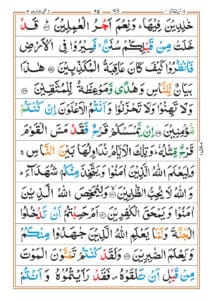 خٰلِدِيْنَ فِيْهَا ؕ وَنِعْمَ اَجْرُ الْعٰمِلِيْنَ ؕ قَدْ
خَلَتْ مِنْ قَبْلِكُمْ سُنَنٌ ۙ فَسِيْرُوْا فِى الْاَرْضِ
فَانْظُرُوْا كَيْفَ كَانَ عَاقِبَةُ الْمُكَذِّبِيْنَ هٰذَا
بَيَانٌ لِّلنَّاسِ وَهُدًى وَّمَوْعِظَةٌ لِّلْمُتَّقِيْنَ
وَلَا تَهِنُوْا وَلَا تَحْزَنُوْا وَاَنْتُمُ الْاَعْلَوْنَ اِنْ كُنْتُمْ
مُّؤْمِنِيْنَ اِنْ يَّمْسَسْكُمْ قَرْحٌ فَقَدْ مَسَّ الْقَوْمَ
قَرْحٌ مِّثْلُهٗ ؕ وَتِلْكَ الْاَيَّامُ نُدَاوِلُهَا بَيْنَ النَّاسِ ۚ
وَلِيَعْلَمَ اللّٰهُ الَّذِيْنَ اٰمَنُوْا وَيَتَّخِذَ مِنْكُمْ شُهَدَآءَ ؕ
وَاللّٰهُ لَا يُحِبُّ الظّٰلِمِيْنَ وَلِيُمَحِّصَ اللّٰهُ الَّذِيْنَ
اٰمَنُوْا وَيَمْحَقَ الْكٰفِرِيْنَ اَمْ حَسِبْتُمْ اَنْ تَدْخُلُوا
الْجَنَّةَ وَلَمَّا يَعْلَمِ اللّٰهُ الَّذِيْنَ جٰهَدُوْا مِنْكُمْ
وَيَعْلَمَ الصّٰبِرِيْنَ وَلَقَدْ كُنْتُمْ تَمَنَّوْنَ الْمَوْتَ
مِنْ قَبْلِ اَنْ تَلْقَوْهُ ۪ فَقَدْ رَاَيْتُمُوْهُ وَاَنْتُمْ